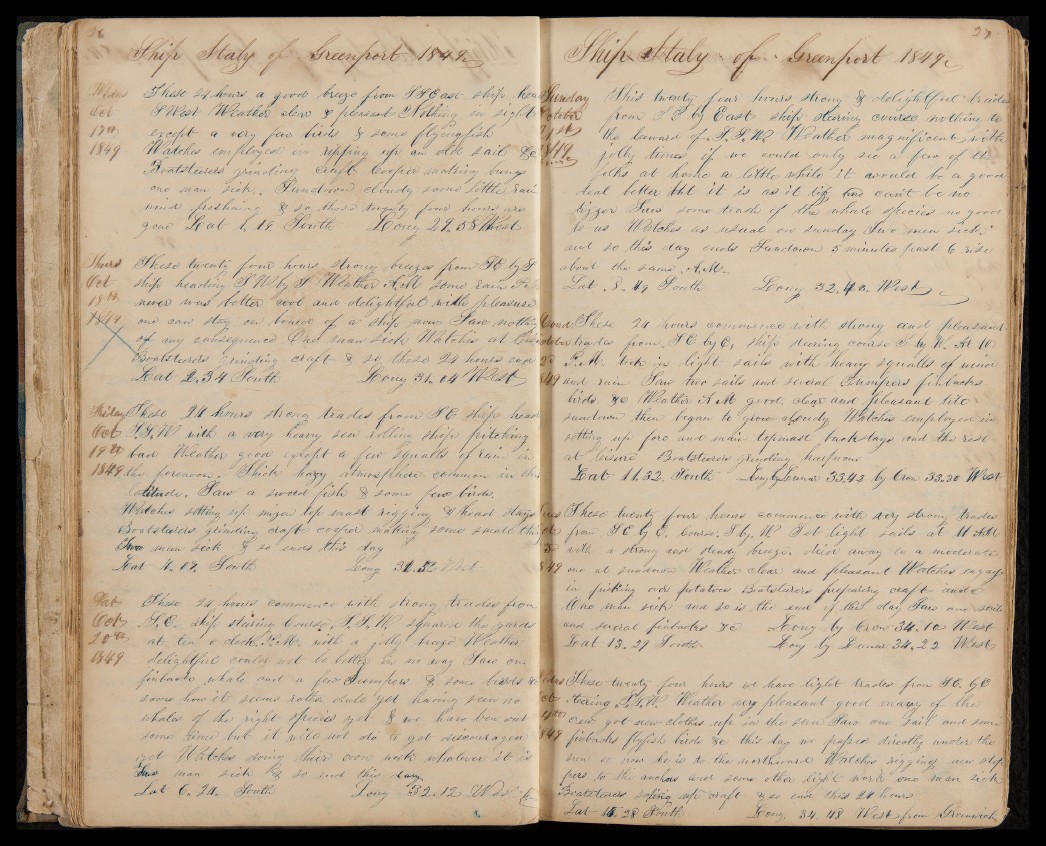 26
Ship Italy of Greenport 1849
Wedns These 24 hours a good breeze from SSEast ship head
Oct SWest Weather clear & pleasant Nothing in sight
17th except a very few birds & some flyingfish
1849 Watches employed in ripping up an old sail &c
Boatsteerers grinding craft Cooper making bungs
one man sick. Sundown cloudy some little rain
wind freshening & so those twenty four hours are
gone Lat 1.19 South Long 29.58 West
Thurs These twenty four hours strong breezes from SE by S
Oct ship heading SW by S Weather A.M some rain
18th never was better cool and delightful with pleasure
1849 one can stay on board of a ship now Saw nothing
of any consequence One man sick Watches at
Boatsteerers grinding craft & so those 24 hours
Lat 2.34 South Long 31.04 West
Friday These 24 hours strong trades from SE ship head
Oct S.S.W with a very heavy sea rolling ship pitching
19th bad Weather good except a few squalls of rain in
1849 the forenoon. Thick hazy atmosphere common in this
latitude. Saw a sword fish & some few birds.
Watches setting up mizen top mast rigging & head stays
Boatsteerers grinding craft cooper making some small
Two men sick & so ends this day
Lat 4.07 South Long 31.52 West
Sat These 24 hours commence with strong trades from
Oct S.E. ship steering Course S.S.W squared the yards
20th at ten o clock P.M. with a jolly breeze Weather
1849 delightful could not be better in no way Saw one
finback whale and a few Jumpers & some birds &c
some how it seems rather dule yet having seen no
whales of the right species yet & we have been out
some time but it will not do to get discouraged
yet Watches doing their own work whatever it is
Two man sick & so end this day
Lat 6.24 South Long 32.12 West
27
Ship Italy of Greenport 1849
Sunday This twenty four hours strong & delightful trades
October from S E by East ship steering course nothing to
21st the leeward of S.S.W. Weather magnificent with
1849 jolly times if we could only see a few of the
folks at home a little while it would be a good
deal better but it is as it is and cant be no
bigger Saw some trash of the whale species no good
to us Watches as usual on sunday Two men sick
and so this day ends Sundown 5 minutes past 6 rise
about the same A.M.
Lat 8.49 South Long 32.40 West
These 24 hours commence with strong and pleasant
trades from SE by E, ship steering course S by W. At 10
P.M. took in light sails with heavy squalls of wind
1849 and rain Saw two sails and several Jumpers finbacks
birds &c Weather A M good, clear and pleasant till
sundown then began to grow cloudy Watches employed in
setting up fore and main topmast backstays and the rest
at leisure Boatsteerers grinding harpoons
Lat 11.32 South Long by Lunar 33.43 by Cron 33.30 West
These twenty four hours commence with very strong trades
from SE by E, Course, S by W Set light sails at 11 AM
with a strong and steady breeze died away to a moderate
one at sundown Weather clear and pleasant Watches engaged
in picking over potatoes Boatsteerers preparing craft and
One man sick and so is the end of this day Saw one sail
and several finbacks &c Long by Cron 34.10 West
Lat 13.27 South Long by Lunar 34.22 West
These twenty four hours we have light trades from SE by E
steering S.S.W. Weather very pleasant good many of the
crew got new clothes up in the sun Saw one sail and some
1849 finbacks flyfish birds &c this day we passed directly under the
sun or now he is to the northward Watches rigging new
to the anchors and some other light work one man sick
Boatsteerers up craft & so end this 24 hours
Lat 15.28 South Long 34.48 West from Greenwich